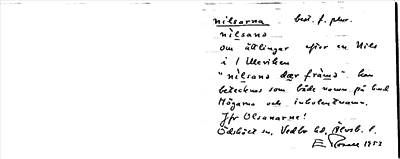 nilsarna best. f. plur.
nilsans
om ättlingar efter en Nils
i 1 Uleviken
"nilsans där främs". kan
betecknas som både namn på
Högarna och inbolentnamn.
Jfr Olsanarne!
Ödsbiet sn. Vedbo hd. Älvsb. l.
E 1953